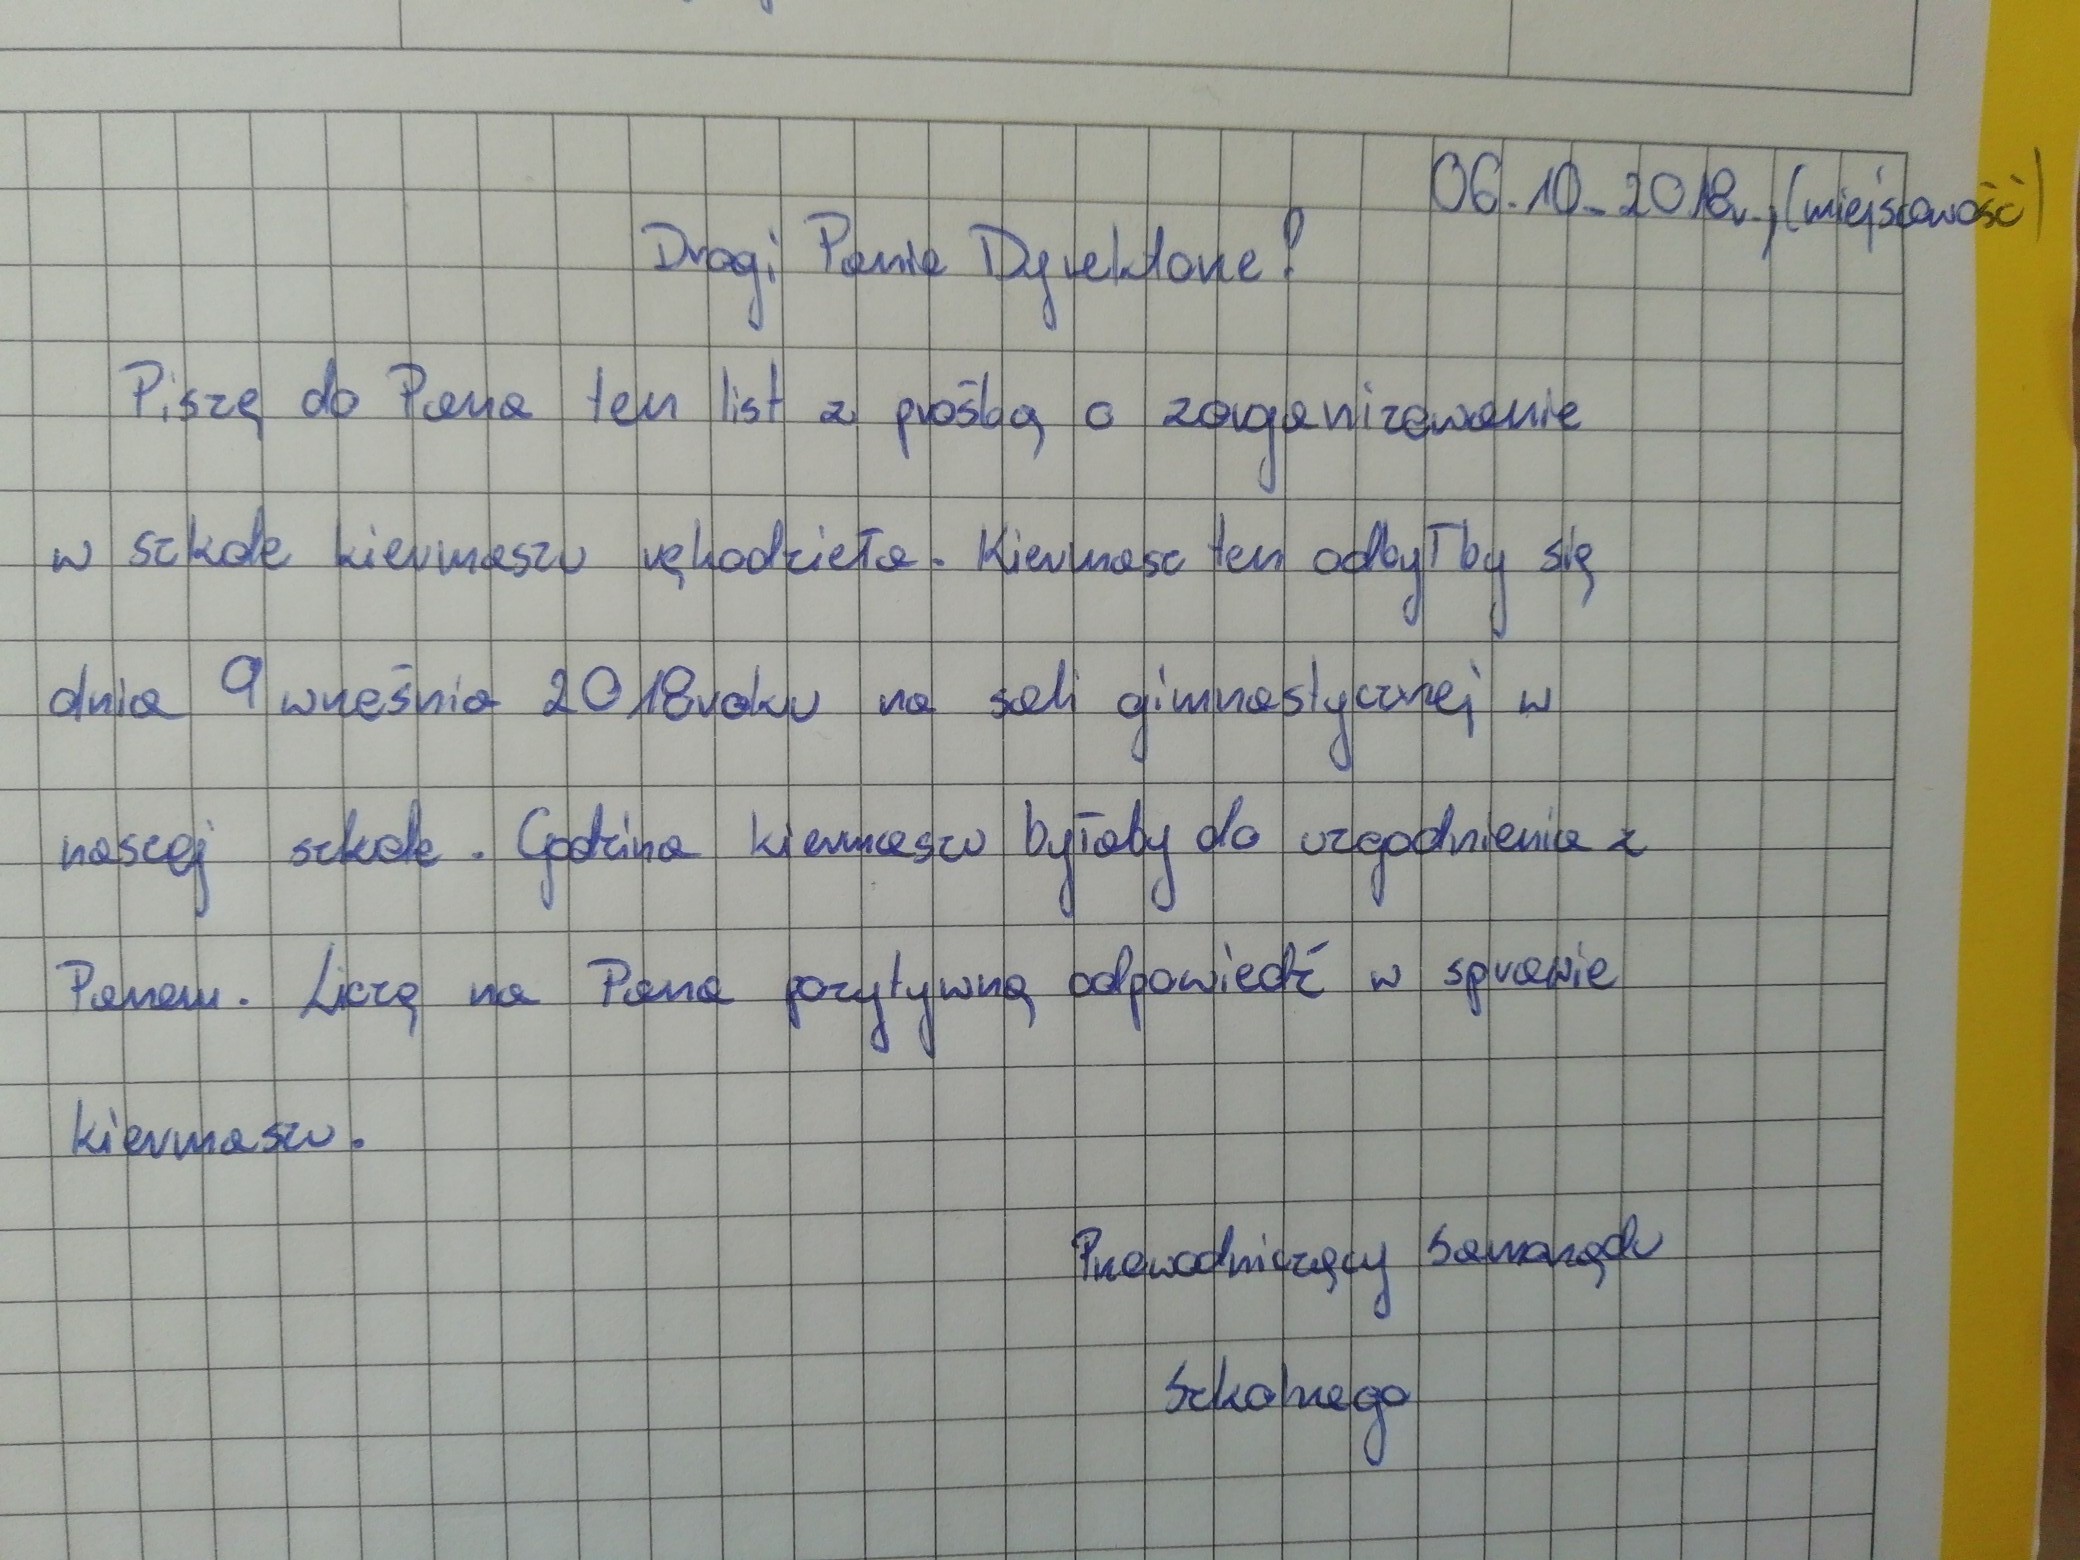 06.10.2018r., (miejscowość)
Drogi Panie Dyrektorze!
Piszę do Pana ten list z prośbą o zorganizowanie
w szkole kiermaszu rękodzieła. Kiermasz ten odbyłby się
dnia 9 września 2018roku na sali gimnastycznej w
naszej szkole. Godzina kiermaszu byłaby do uzgodnienia z
Panem. Liczę na Pana pozytywną odpowiedź w sprawie
kiermaszu.
Przewodniczący Samorządu
Szkolnego